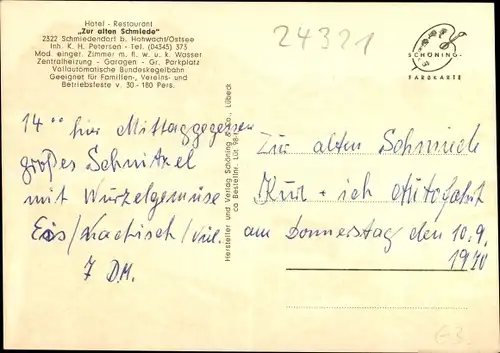 Hotel - Restaurant
„Zur alten Schmiede"
2322 Schmiedendorf b. Hohwacht/Ostsee
Inh. K. H. Petersen - Tel. (04345) 373
Mod. einger. Zimmer m. fl. w. u. k. Wasser
Zentralheizung - Garagen - Gr. Parkplatz
Vollautomatische Bundeskegelbahn
Geeignet für Familien-, Vereins- und
Betriebsfeste v. 30 - 180 Pers.
24321
SCHÖNING-
FARBKARTE
14°° hier Mittaggegessen
großes Schnitzel
mit Wurzelgemüse
Eis/Nachtisch/
7 D.M.
Hersteller und Verlag Schöning & Co., Lübeck
Bestellnr. Lüt 98
Zur alten Schmiede
Kur - ich Autofahrt
am Donnerstag den 10.9.
1970